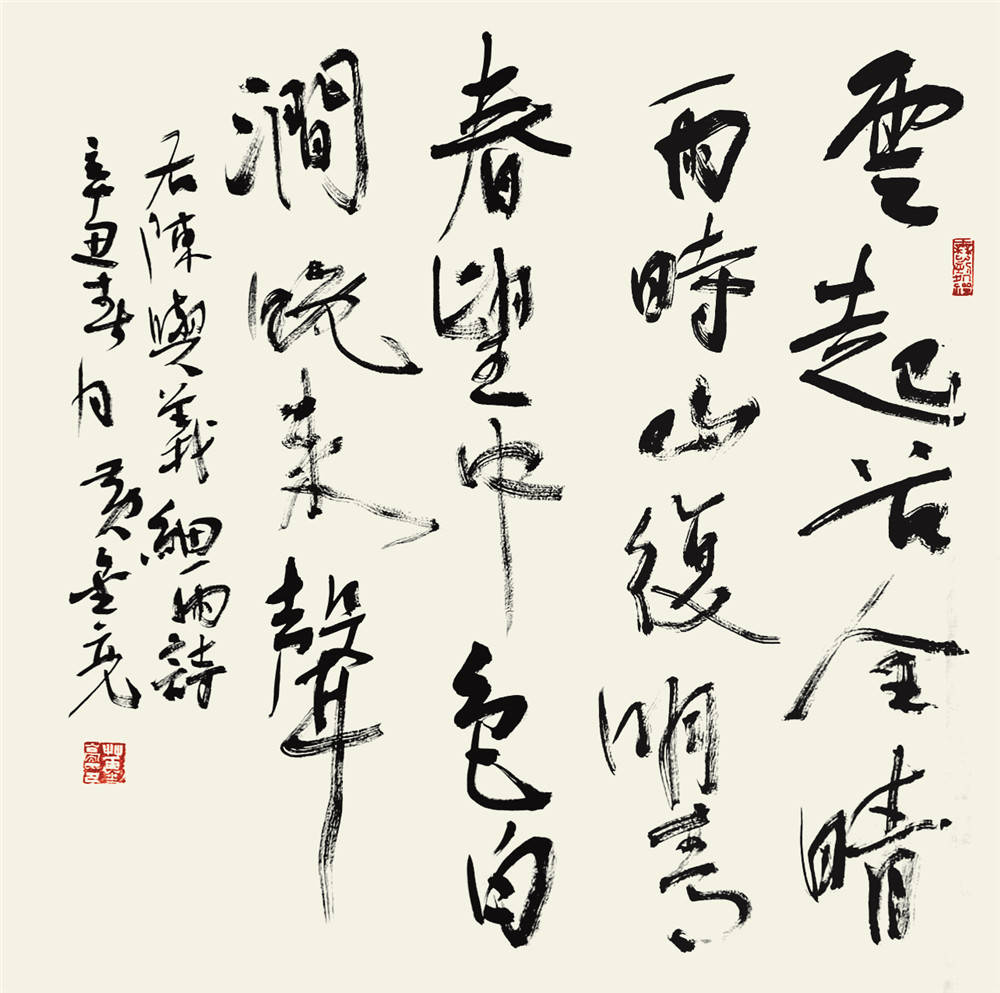 雲起谷全晴
雨時山復明青
春望中色白
澗晚来聲
右陳與義細雨詩
辛丑春月 黄金亮